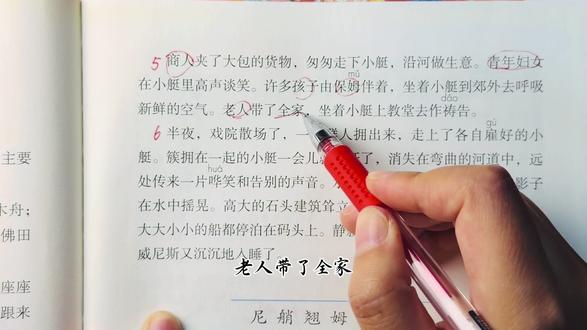 5 商人夹了大包的货物，匆匆走下小艇，沿河做生意。青年妇女
mǔ
在小艇里高声谈笑。许多孩子由保姆伴着，坐着小艇到郊外去呼吸
dǎo
新鲜的空气。老人带了全家，坐着小艇上教堂去作祷告。
gù
6 半夜，戏院散场了，一 人拥出来，走上了各自雇好的小
艇。簇拥在一起的小艇一会儿 了，消失在弯曲的河道中，远
huá
处传来一片哗笑和告别的声音。 影子
在水中摇晃。高大的石头建筑耸立
大大小小的船都停泊在码头上。静
威尼斯又沉沉地入睡了。
老人带了全家
尼艄翘姆
主要
木舟；
佛田
座座
跟来